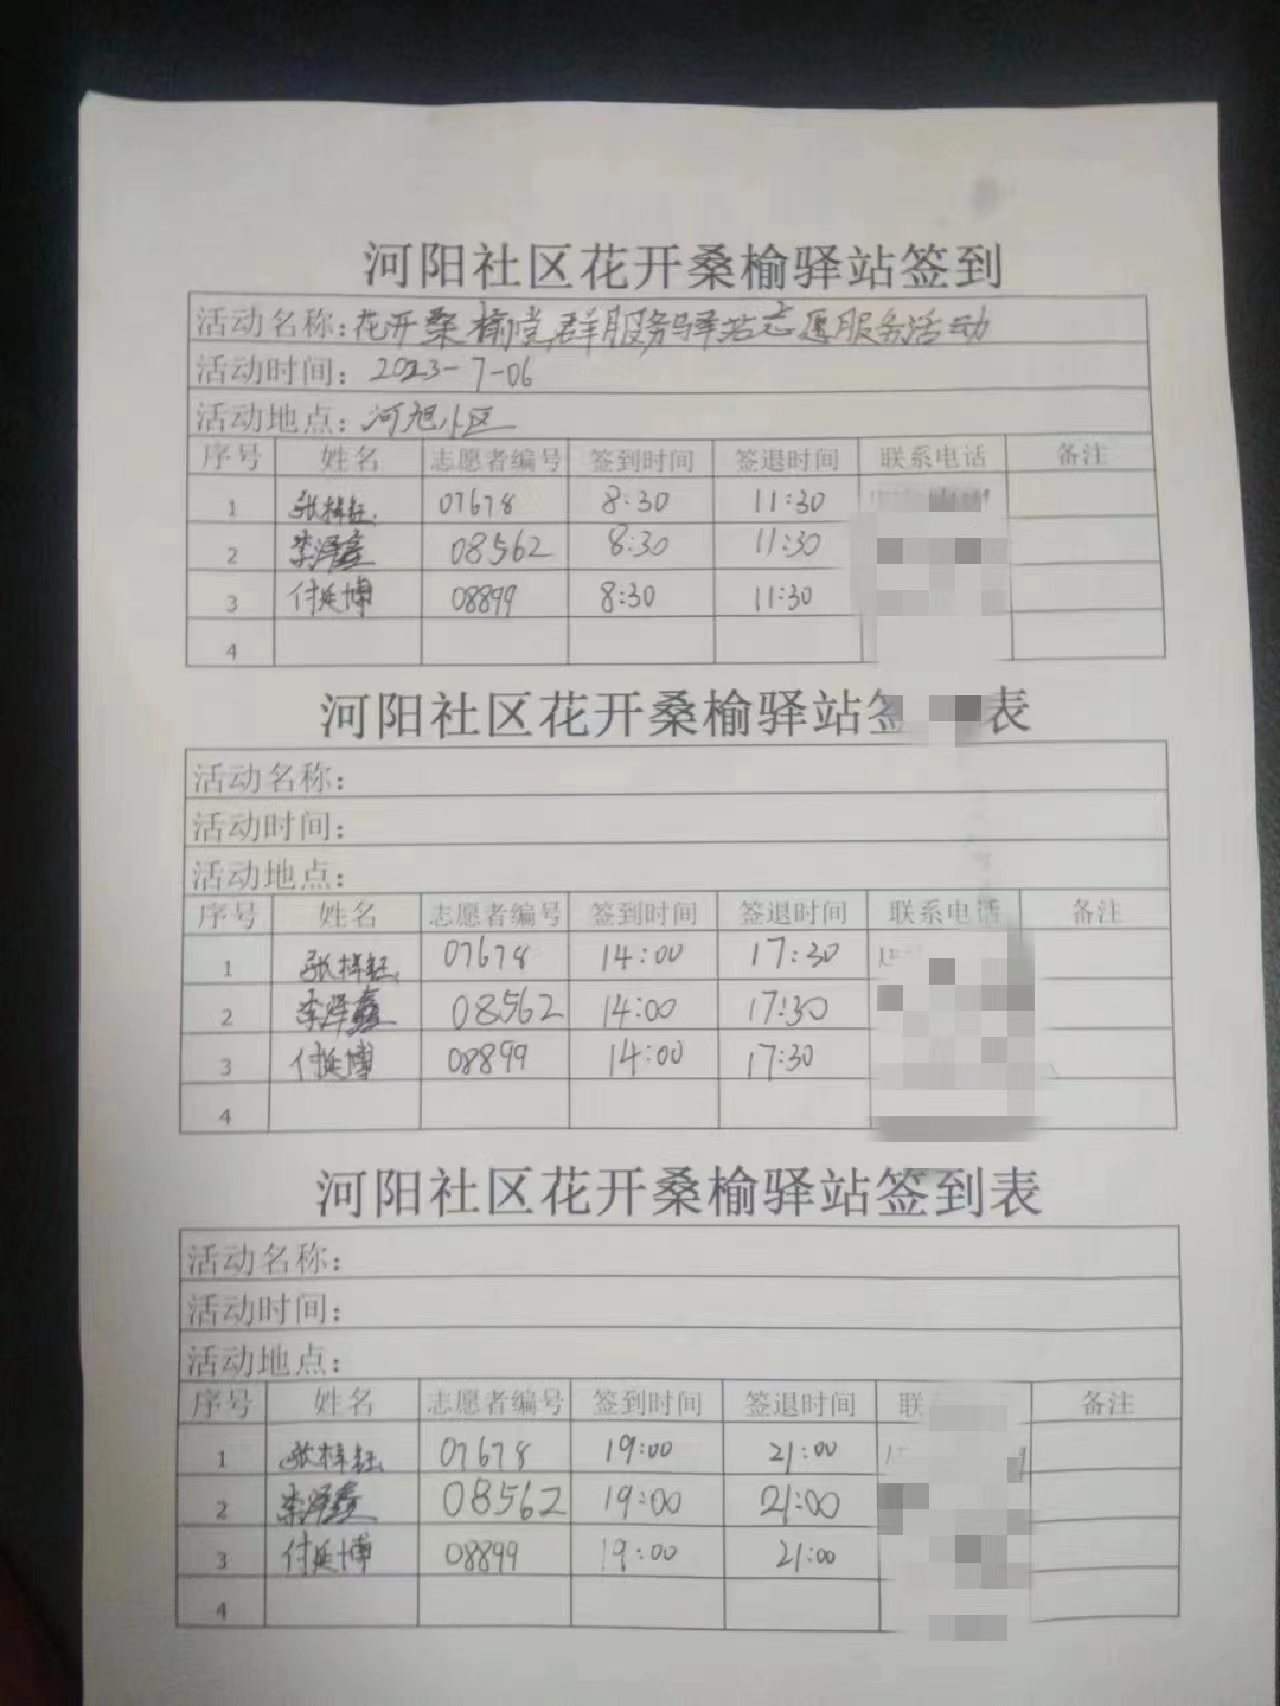 河阳社区花开桑榆驿站签到
活动名称：花开桑榆党群服务驿站志愿服务活动
活动时间：2023-7-06
活动地点：河旭小区
序号 姓名 志愿者编号 签到时间 签退时间 联系电话 备注
1 张梓钰 07678 8:30 11:30
2 李泽鑫 08562 8:30 11:30
3 付延博 08899 8:30 11:30
4
河阳社区花开桑榆驿站签 表
活动名称：
活动时间：
活动地点：
序号 姓名 志愿者编号 签到时间 签退时间 联系电话 备注
1 张梓钰 07678 14:00 17:30
2 李泽鑫 08562 14:00 17:30
3 付延博 08899 14:00 17:30
4
河阳社区花开桑榆驿站签到表
活动名称：
活动时间：
活动地点：
序号 姓名 志愿者编号 签到时间 签退时间 联 备注
1 张梓钰 07678 19:00 21:00
2 李泽鑫 08562 19:00 21:00
3 付延博 08899 19:00 21:00
4